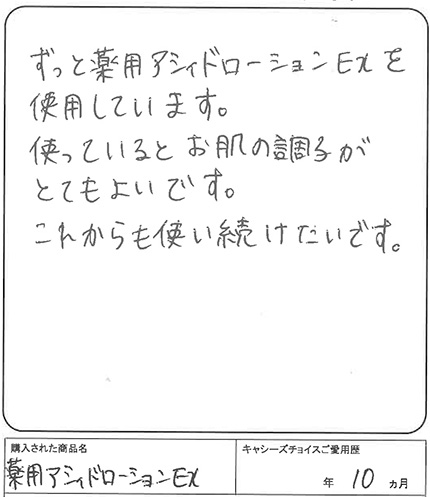 ずっと薬用アシィドローションEXを
使用しています。
使っているとお肌の調子が
とてもよいです。
これからも使い続けたいです。
購入された商品名
キャシーズチョイスご愛用歴
薬用アシィドローションEX
年 10 ヵ月